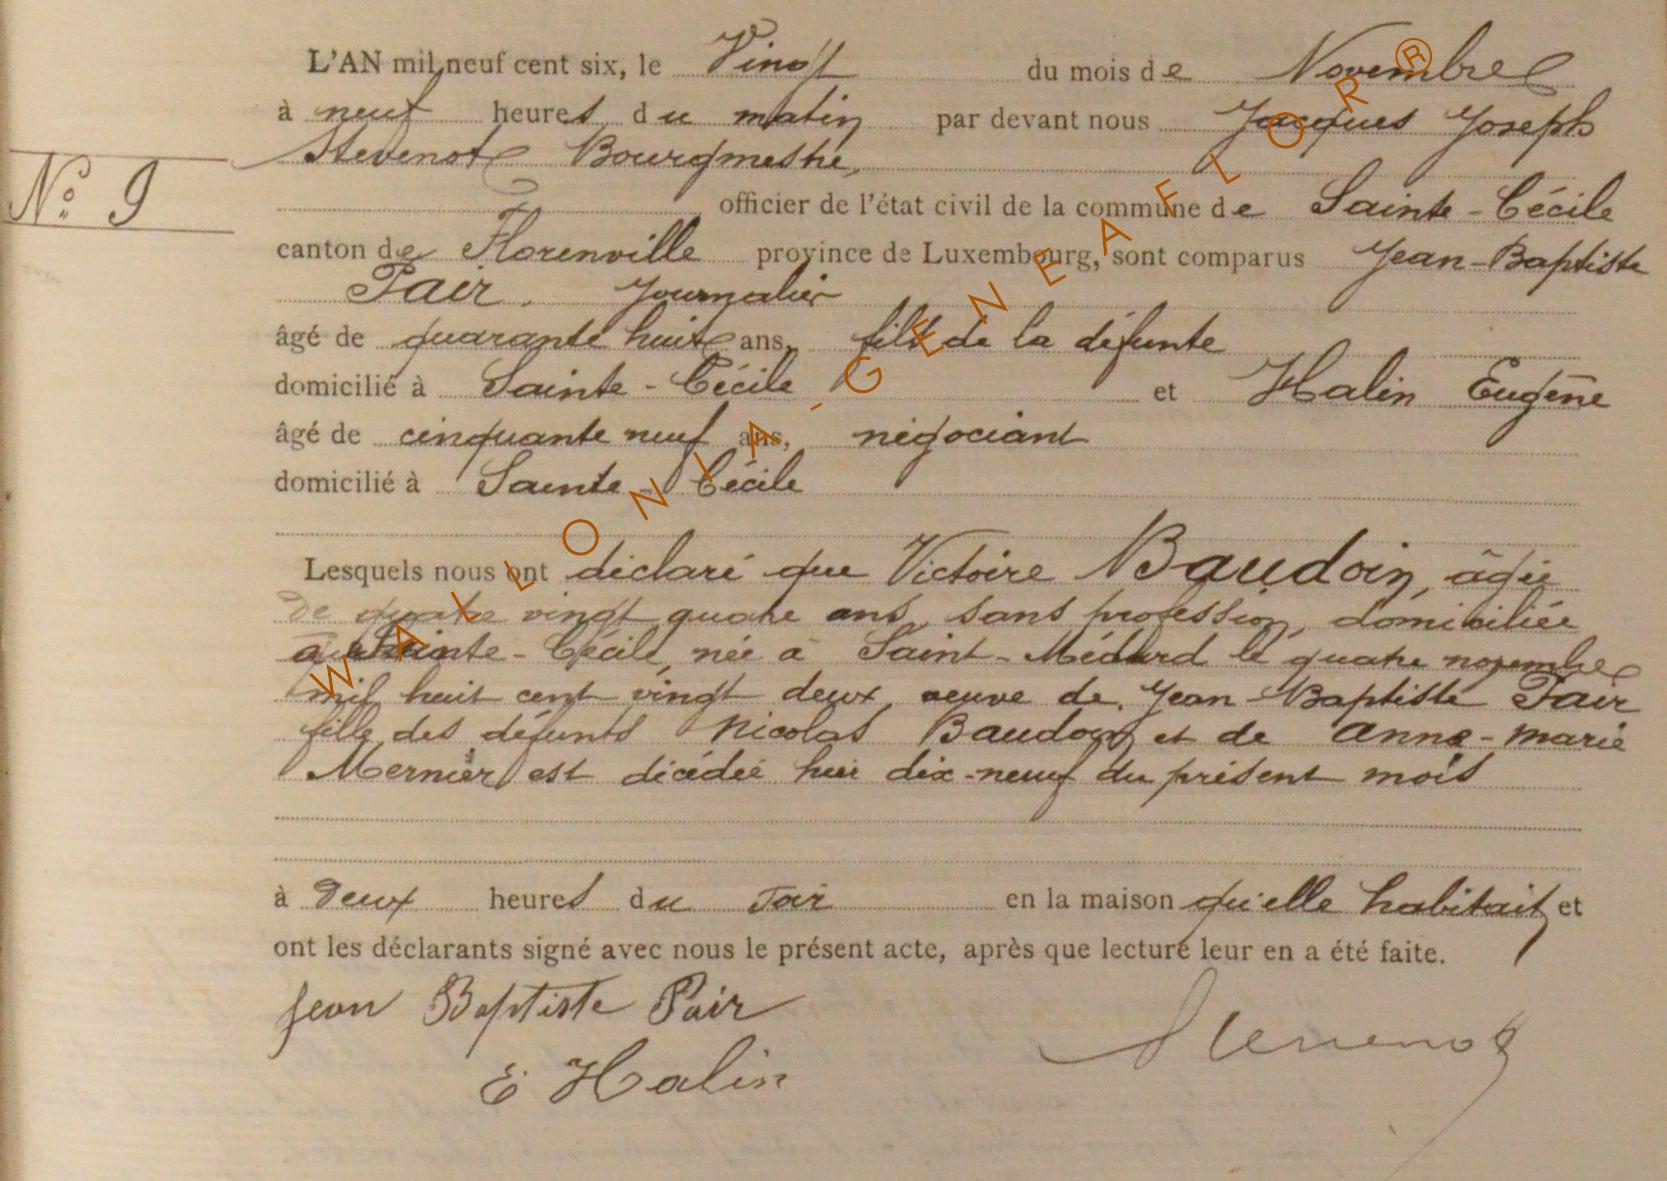 L'AN mil neuf cent six, le Vingt du mois de Novembre
à neuf heures du matin par devant nous Jacques Joseph
Stevenot Bourgmestre,
N° 9
officier de l'état civil de la commune de Sainte-Cécile
canton de Florenville province de Luxembourg, sont comparus Jean-Baptiste
Pair, Journalier
âgé de quarante huit ans, fils de la défunte
domicilié à Sainte-Cécile et Halin Eugène
âgé de cinquante neuf ans, négociant
domicilié à Sainte-Cécile
Lesquels nous ont déclaré que Victoire Baudoin, âgée
de quatre vingt quatre ans, sans profession, domiciliée
à Sainte-Cécile, née à Saint-Médard le quatre novembre
mil huit cent vingt deux, veuve de Jean-Baptiste Pair
fille des défunts Nicolas Baudoin et de Anne-Marie
Mernier est décédée hier dix-neuf du présent mois
à Deux heures du soir en la maison qu'elle habitait et
ont les déclarants signé avec nous le présent acte, après que lecture leur en a été faite.
Jean Baptiste Pair
Stevenot
E Halin
WALLONIA-GENEAFLOR®